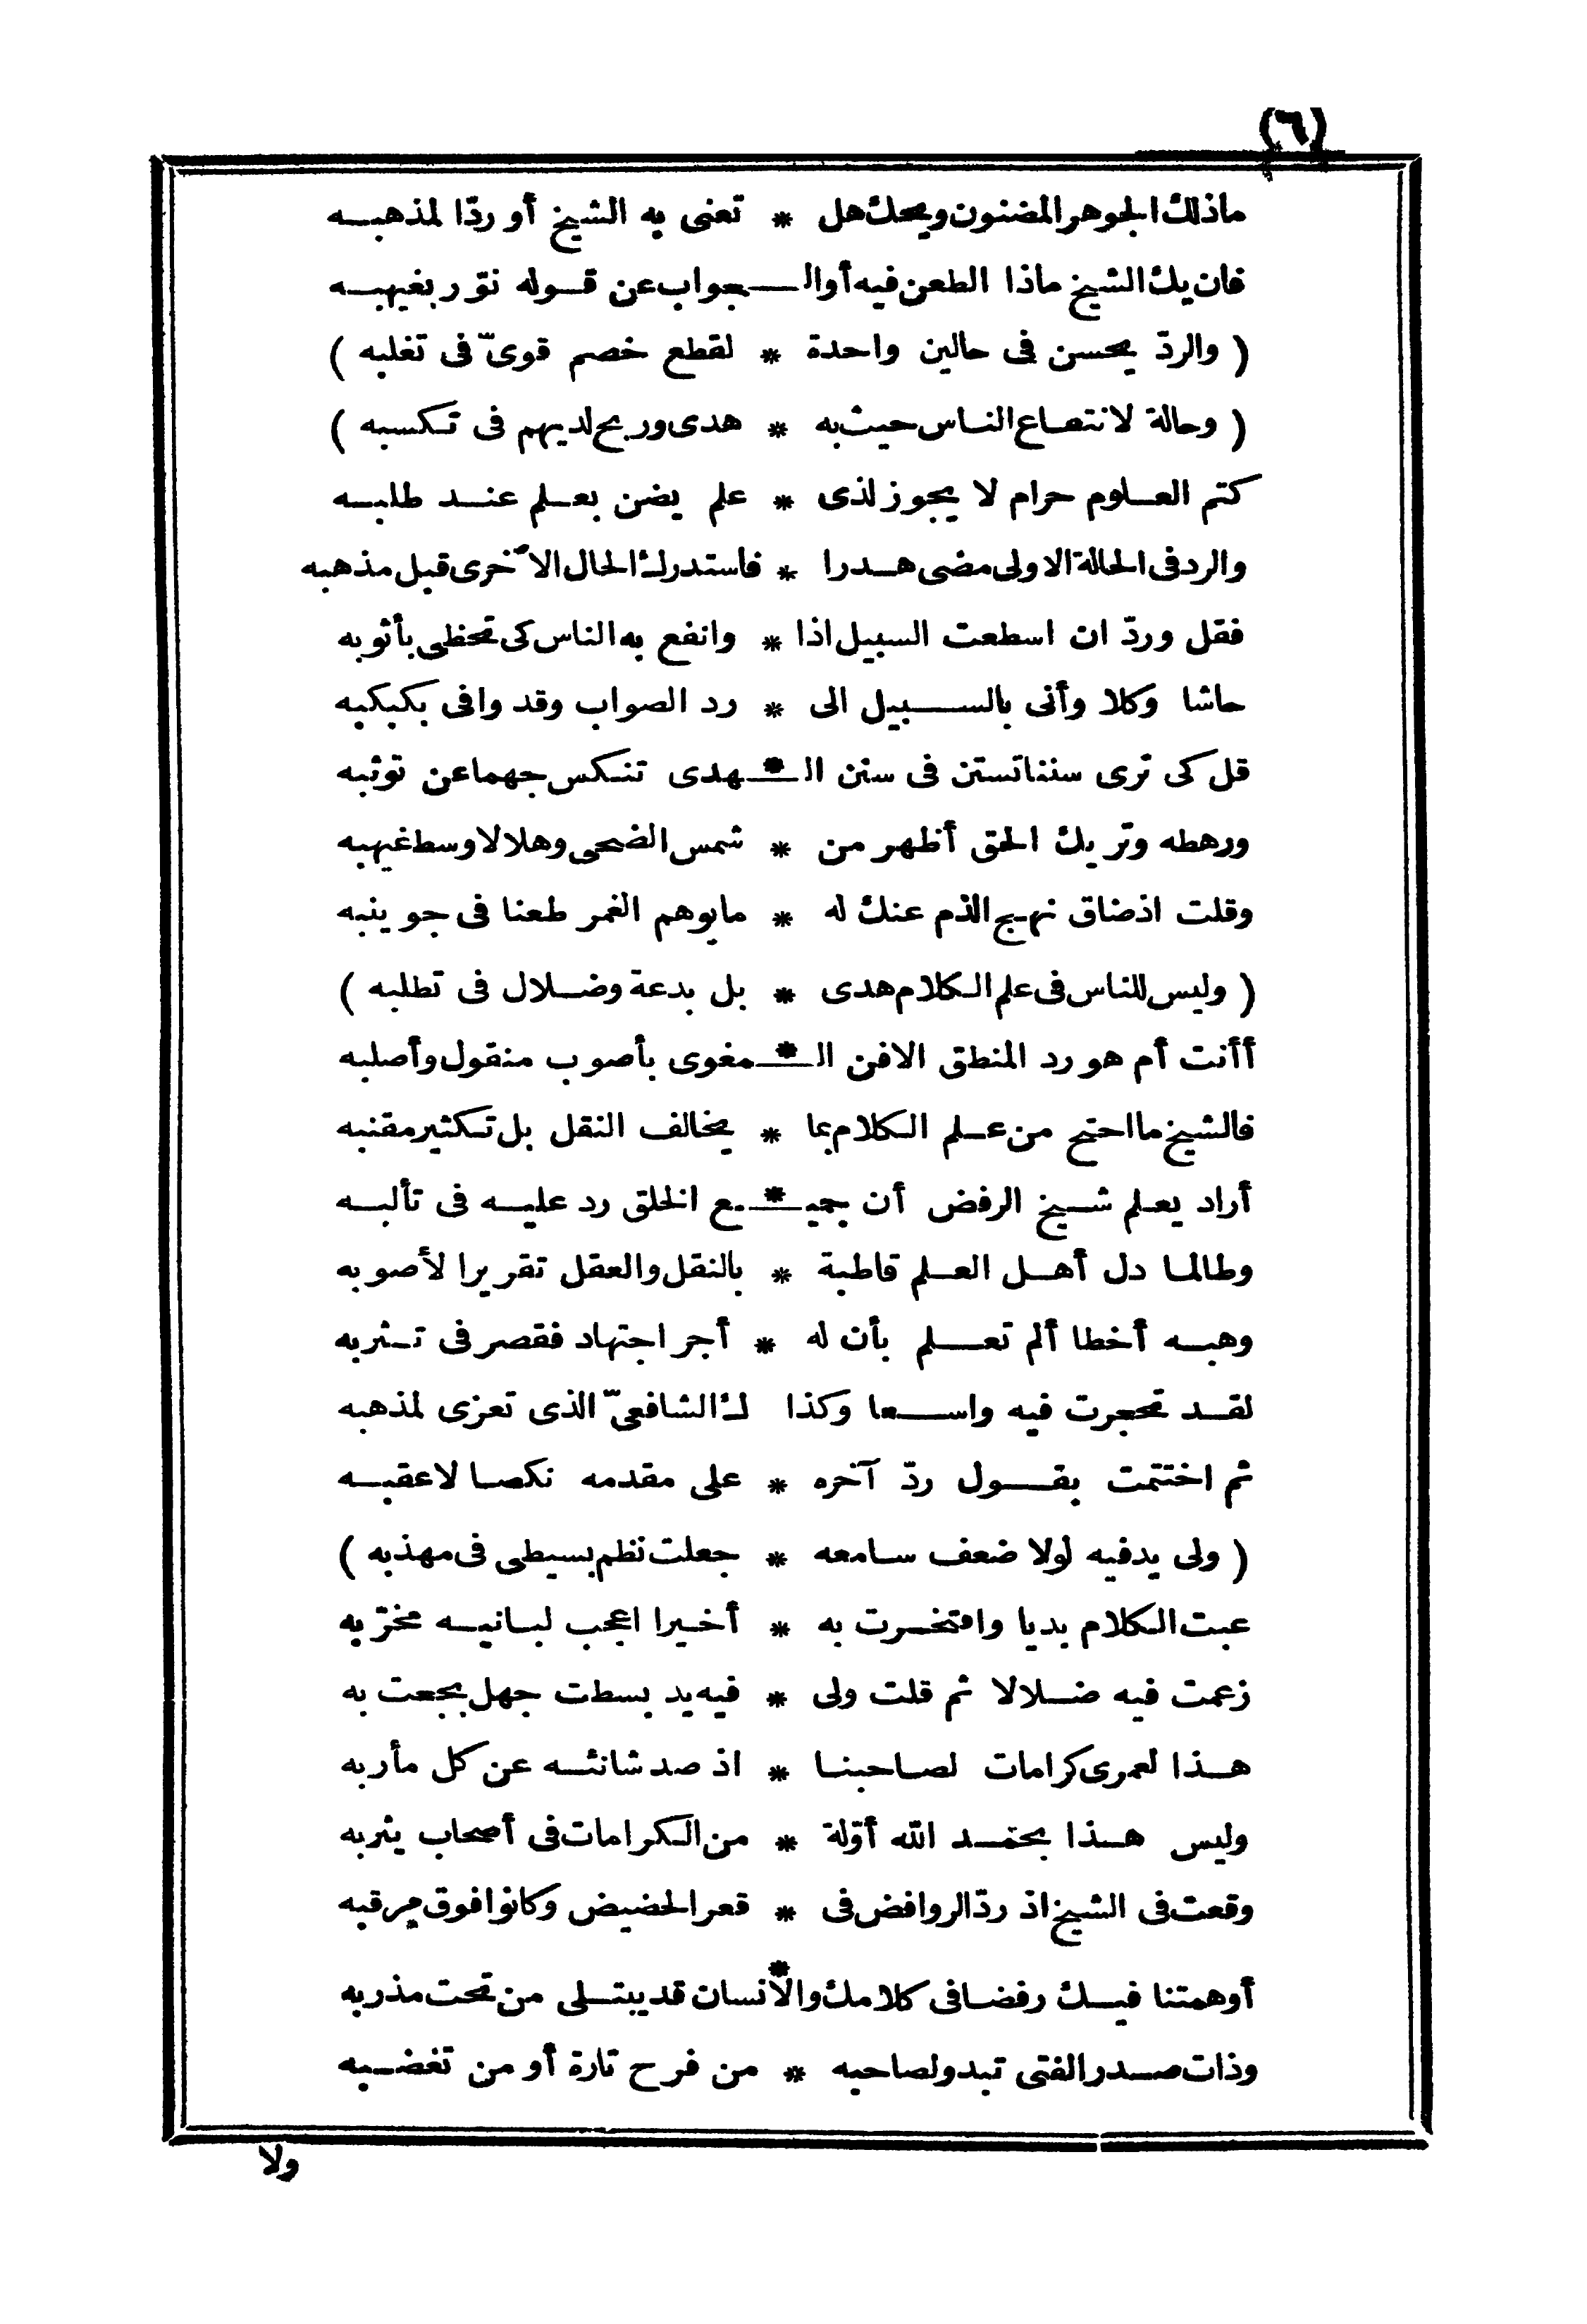 (٦)
ماذلك الجوهر المضنون ويحك هل * تعنى به الشيخ أو ردّا لمذهبـه
فان يك الشيخ ماذا الطعن فيه أو الـجواب عن قـوله نوّر بغيهبـه
( والردّ يحسن فى حالين واحدة * لقطع خصم قوىّ فى تغلبه )
( وحالة لانتصاع الناس حيث به * هدى وربح لديهم فى تكسبه )
كتم العـلوم حرام لا يجوز لذى * علم يضن بعـلم عنـد طلبـه
والرد فى الحالة الاولى مضى هـدرا * فاستدرك الحال الآخرى قبل مذهبه
فقل وردّ ان اسطعت السبيل اذا * وانفع به الناس كى تحظى بأثوبه
حاشا وكلا وأنى بالسـبيل الى * رد الصواب وقد وافى بكبكبه
قل كى ترى سنناتستن فى سنن الـ * ـهدى تنكس جهما عن توثبه
ورهطه وتريك الحق أظهر من * شمس الضحى وهلالا وسط غيهبه
وقلت اذ ضاق نهج الذم عنك له * مايوهم الغمر طعنا فى جوينبه
( وليس للناس فى علم الكلام هدى * بل بدعة وضـلال فى تطلبه )
أأنت أم هو رد المنطق الافن الـ * ـمغوى بأصوب منقول وأصلبه
فالشيخ ما احتج من عـلم الكلام بما * يخالف النقل بل تكثير مقنبه
أراد يعلم شـيخ الرفض أن جميـ * ـع الخلق رد عليـه فى تألبـه
وطالما دل أهـل العـلم قاطبة * بالنقل والعقل تقريرا لأصوبه
وهبـه أخطا ألم تعـلم بأن له * أجر اجتهاد فقصر فى تـثربه
لقـد تحجرت فيه واسـعا وكذا ك الشافعىّ الذى تعزى لمذهبه
ثم اختتمت بقـول ردّ آخره * على مقدمه نكصـا لاعقبـه
( ولى يد فيه لولا ضعف سـامعه * جعلت نظم بسيطى فى مهذبه )
عبت الكلام بديا وافتخـرت به * أخـيرا اعجب لبـانيـه مخرّبه
زعمت فيه ضـلالا ثم قلت ولى * فيه يد بسطت جهل بجعت به
هـذا لعمرى كرامات لصـاحبنـا * اذ صد شانئـه عن كل مأربه
وليس هـذا بحمـد الله أوّلة * من الكرامات فى أصحاب يثربه
وقعت فى الشيخ اذ ردّ الروافض فى * قعر الحضيض وكانوا فوق مرقبه
أوهمتنا فيـك رفضـا فى كلامك والا * نسان قد يبتـلى من تحت مذربه
وذات صـدر الفتى تبدو لصاحبه * من فرح تارة أو من تغضـبه
ولا